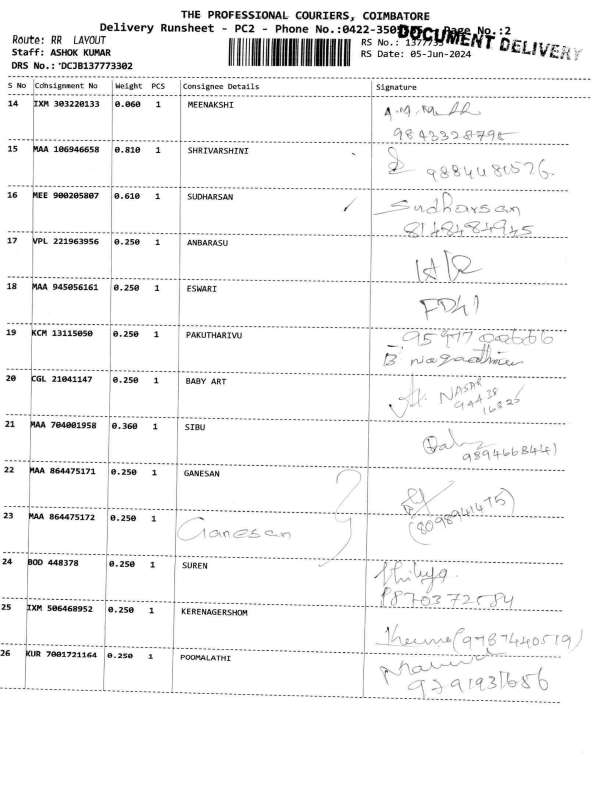 THE PROFESSIONAL COURIERS, COIMBATORE
Delivery Runsheet - PC2 - Phone No.:0422-350 Page No.:2
DOCUMENT DELIVERY
Route: RR LAYOUT
RS No.: 1377733
Staff: ASHOK KUMAR
RS Date: 05-Jun-2024
DRS No.: DCJB137773302
S No Consignment No Weight PCS Consignee Details Signature
14 IXM 303220133 0.060 1 MEENAKSHI
9843328795
15 MAA 106946658 0.810 1 SHRIVARSHINI
9884481526.
16 MEE 900205807 0.610 1 SUDHARSAN Sudharsan
8148484945
17 VPL 221963956 0.250 1 ANBARASU
18 MAA 945056161 0.250 1 ESWARI
19 KCM 13115050 0.250 1 PAKUTHARIVU
20 CGL 21041147 0.250 1 BABY ART NASAR
99438
16825
21 MAA 704001958 0.360 1 SIBU
9894668441
22 MAA 864475171 0.250 1 GANESAN
(8098941475)
23 MAA 864475172 0.250 1 Ganesan
24 BOD 448378 0.250 1 SUREN
8870372584
25 IXM 506468952 0.250 1 KERENAGERSHOM
(9787440519)
26 KUR 7001721164 0.250 1 POOMALATHI
9791931686